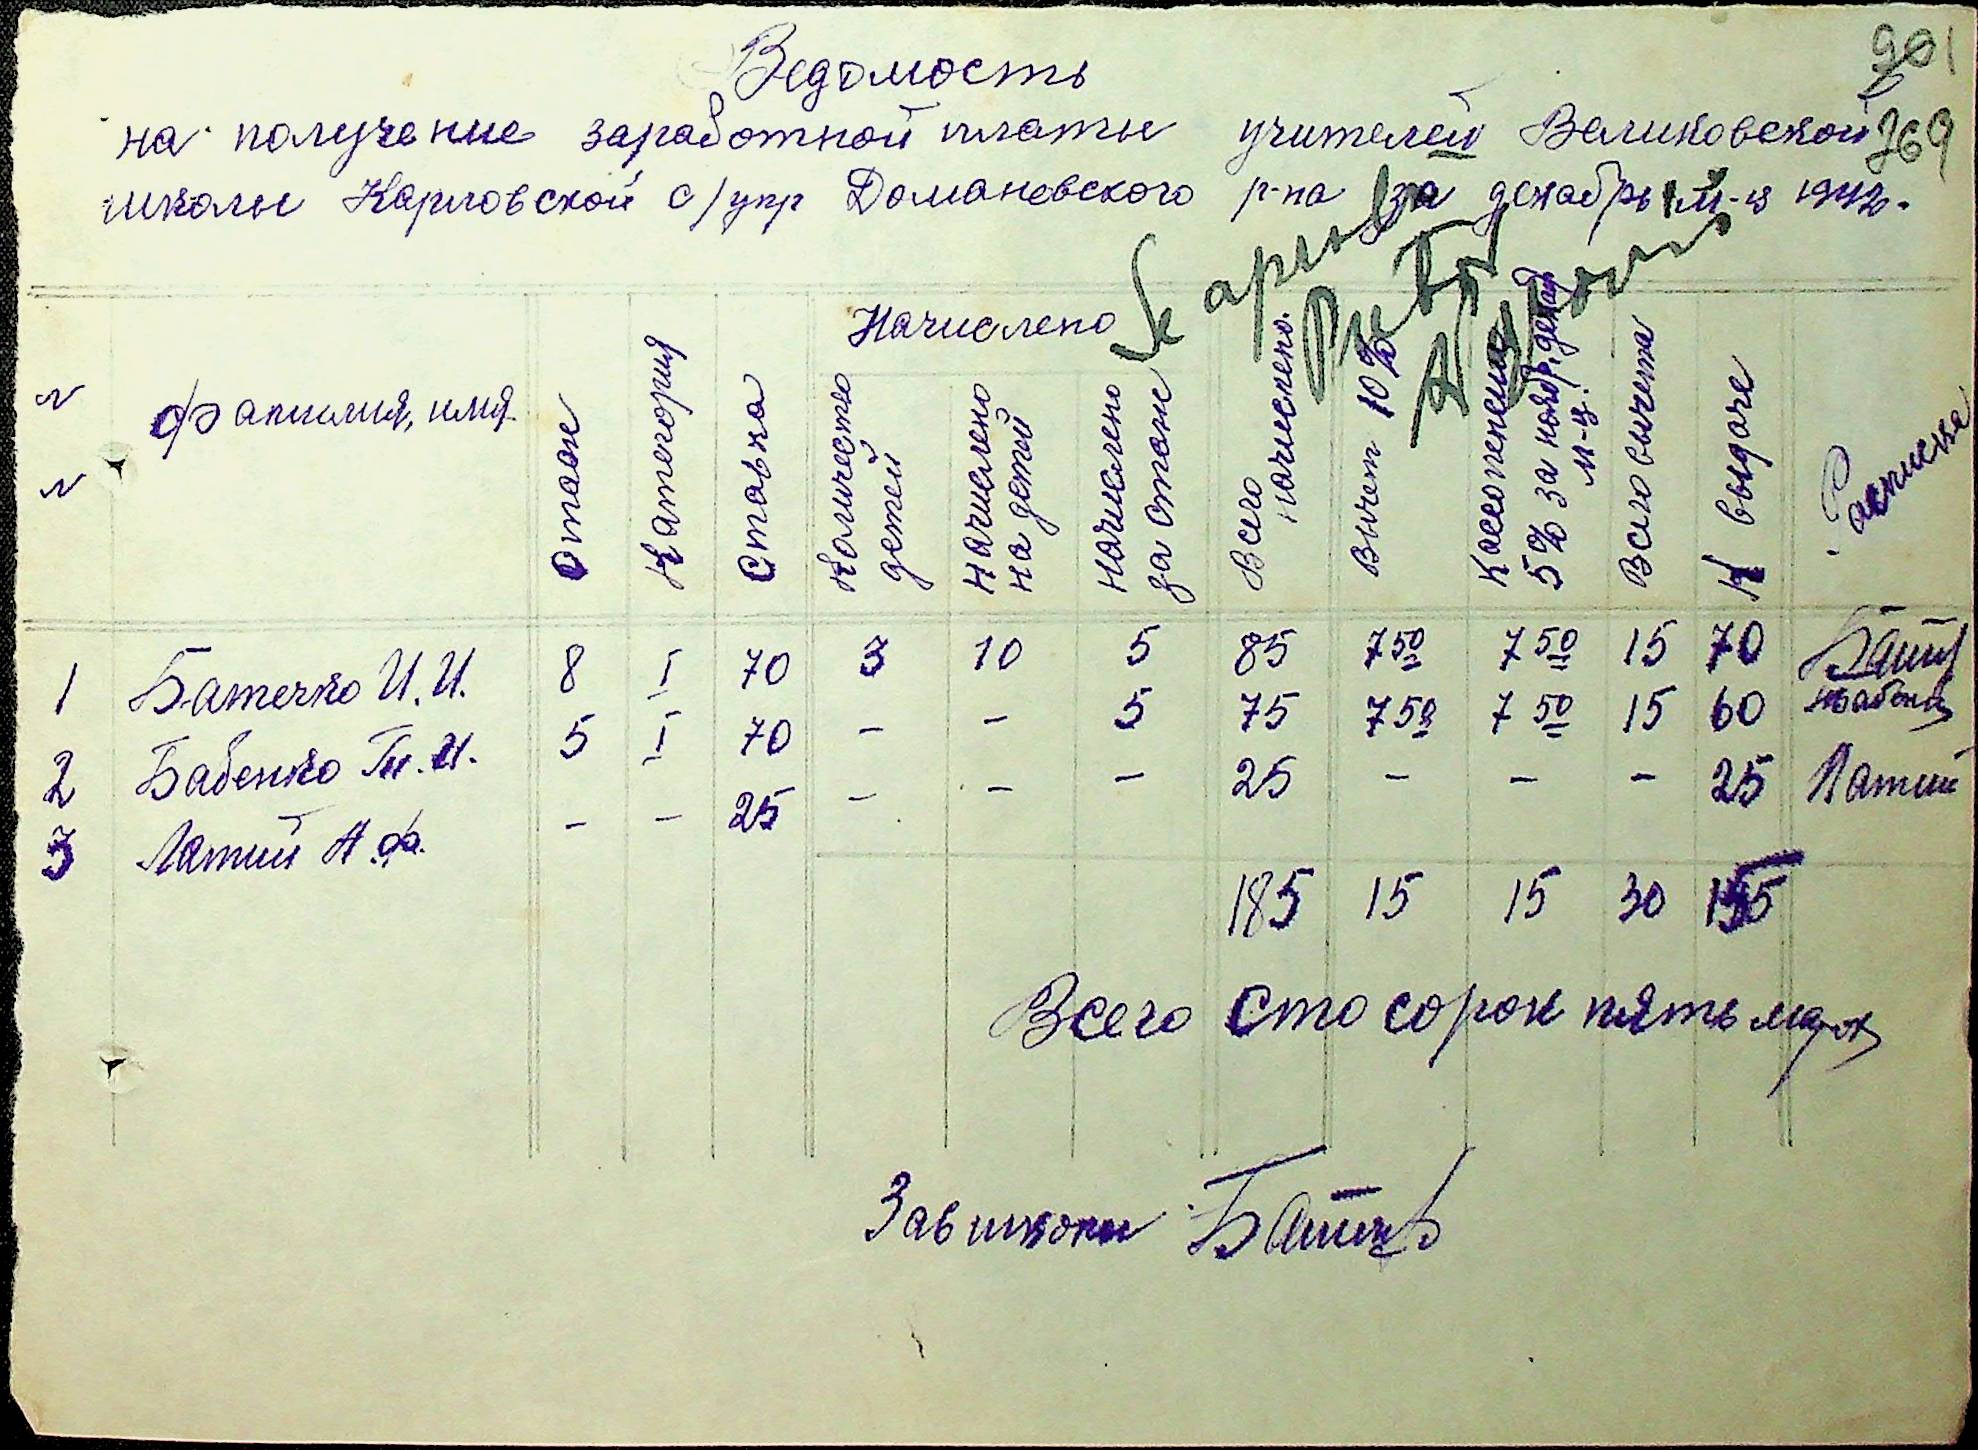 Ведомость
на получение заработной платы учителей Великовской
школы Карловской с/упр Домановского р-на за декабрь м-ц 1942.
201
369
Начислено
№ № Фамилия, имя Стаж Категория Ставка Количество детей Начислено на детей Начислено за стаж Всего начислено. Вычет 10% 5% за ноябр. декаб м-ц. Всего вычета К выдаче Расписка
1 Батечко И.И. 8 I 70 3 10 5 85 7 50 7 50 15 70 Батеч
2 Бабенко Т.И. 5 I 70 – – 5 75 7 50 7 50 15 60 Бабенко
3 Латий А.Ф. – – 25 – – – 25 – – – 25 Латий
185 15 15 30 155
Всего сто сорок пять марок
Завшколы Батеч